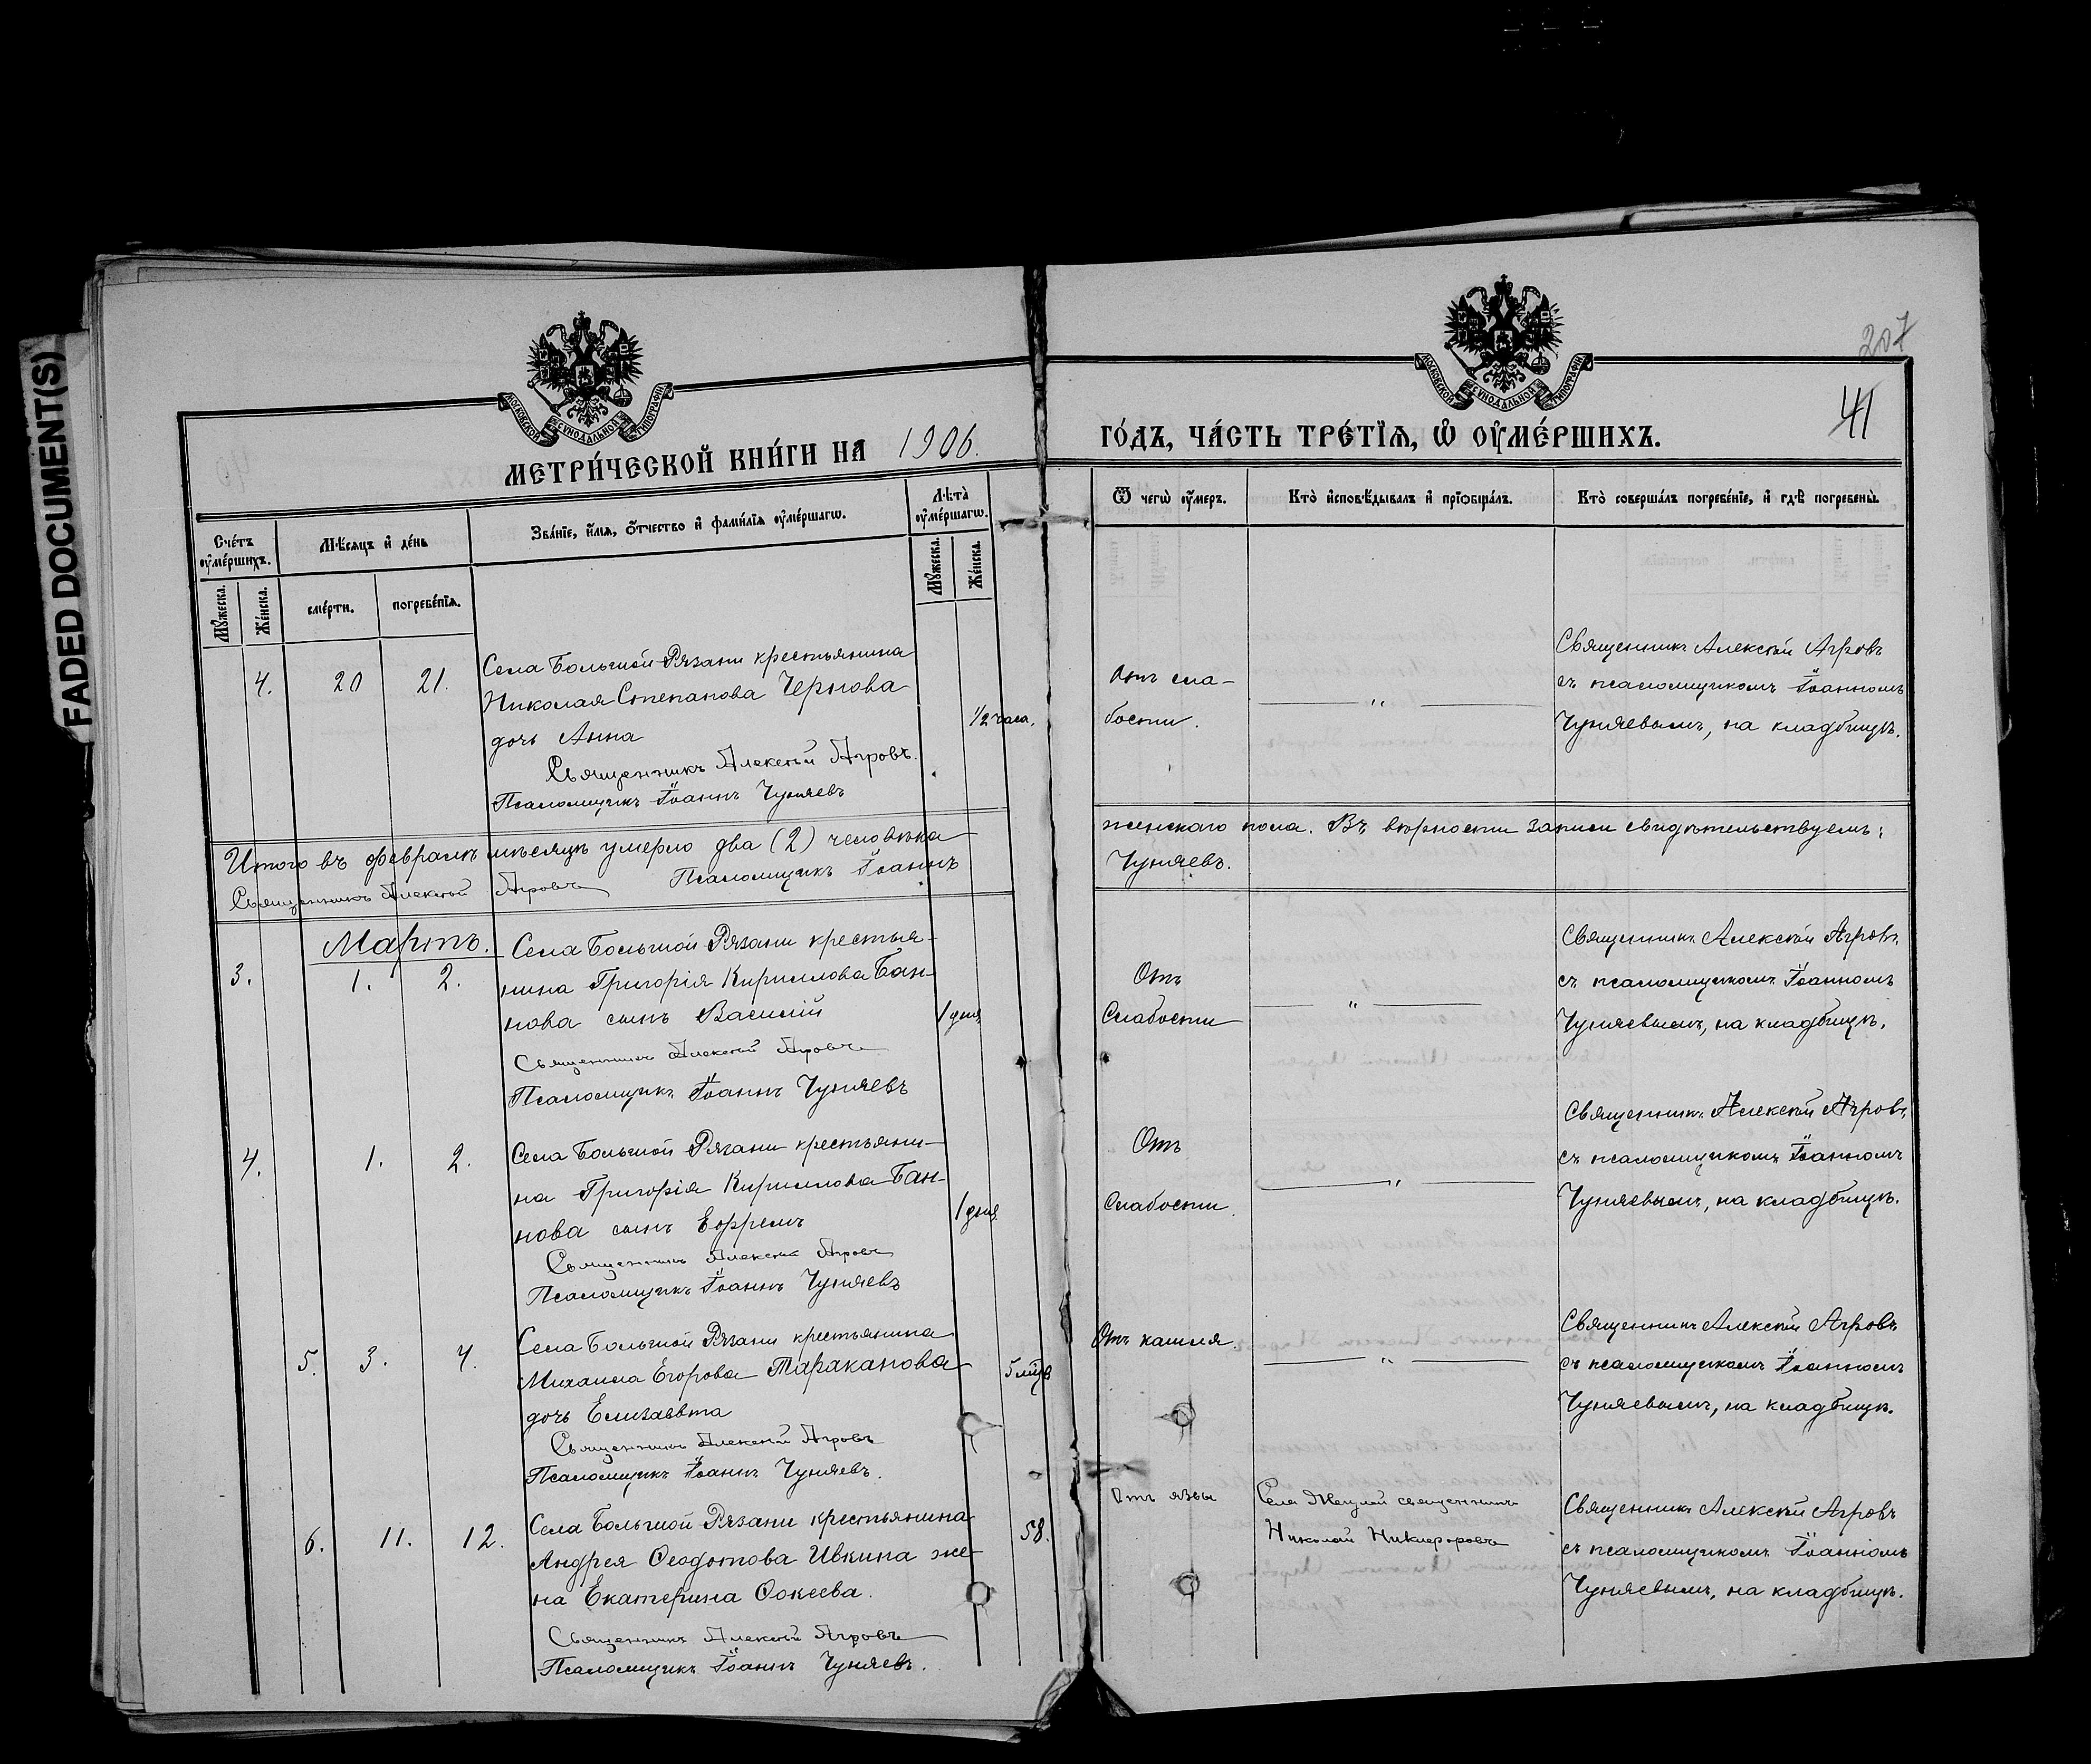 FADED DOCUMENT(S)
МОСКОВСКОЙ СѴНОДАЛЬНОЙ ТИПОГРАФІИ
МОСКОВСКОЙ СѴНОДАЛЬНОЙ ТИПОГРАФІИ
207
41
МЕТРИ́ЧЕСКОЙ КНИ́ГИ НА 1906. ГО́ДЪ, ЧА́СТЬ ТРЕ́ТЇѦ, Ѡ҆ ОУ҆МЕ́РШИХЪ.
Сче́тъ оу҆ме́ршихъ.
Мѣ́сѧцъ и҆ де́нь
Зва́нїе, и҆́мѧ, ѻ҆́тчество и҆ фами́лїѧ оу҆ме́ршагѡ.
Лѣ́та оу҆ме́ршагѡ.
Ѿ чегѡ̀ оу҆́меръ.
Кто̀ и҆сповѣ́дывалъ и҆ прїѻбща́лъ.
Кто̀ соверша́лъ погребе́нїе, и҆ гдѣ̀ погребены̀.
Мꙋ́жеска.
Же́нска.
сме́рти.
погребе́нїѧ.
Мꙋ́жеска.
Же́нска.
4. 20 21.
Села Большой Рязани крестьянина
Николая Степанова Чернова
дочь Анна
1/2 часа.
Священникъ Алексѣй Агровъ.
Псаломщикъ Іоаннъ Чуняевъ
Отъ сла-
бости.
"
Священникъ Алексѣй Агровъ
съ псаломщикомъ Іоанномъ
Чуняевымъ, на кладбищѣ.
Итого въ февралѣ мѣсяцѣ умерло два (2) человѣка женскаго пола. Въ вѣрности записи свидѣтельствуемъ:
Священникъ Алексѣй Агровъ Псаломщикъ Іоаннъ Чуняевъ.
Мартъ.
3. 1. 2.
Села Большой Рязани крестья-
нина Григорія Кириллова Бан-
нова сынъ Василій
1 дня
Священникъ Алексѣй Агровъ
Псаломщикъ Іоаннъ Чуняевъ
Отъ
Слабости
"
Священникъ Алексѣй Агровъ
съ псаломщикомъ Іоанномъ
Чуняевымъ, на кладбищѣ.
4. 1. 2.
Села Большой Рязани крестьяни-
на Григорія Кириллова Бан-
нова сынъ Ефремъ
1 дня
Священникъ Алексѣй Агровъ
Псаломщикъ Іоаннъ Чуняевъ
Отъ
Слабости.
"
Священникъ Алексѣй Агровъ
съ псаломщикомъ Іоанномъ
Чуняевымъ, на кладбищѣ.
5. 3. 4.
Села Большой Рязани крестьянина
Михаила Егорова Тараканова
дочь Елизавѣта
5 мцѣ
Священникъ Алексѣй Агровъ
Псаломщикъ Іоаннъ Чуняевъ.
Отъ кашля.
"
Священникъ Алексѣй Агровъ
съ псаломщикомъ Іоанномъ
Чуняевымъ, на кладбищѣ.
6. 11. 12.
Села Большой Рязани крестьянина
Андрея Ѳеодотова Ивкина же-
на Екатерина Ѳокеева.
58.
Священникъ Алексѣй Агровъ
Псаломщикъ Іоаннъ Чуняевъ.
Отъ язвы
Села священникъ
Николай Никифоровъ
Священникъ Алексѣй Агровъ
съ псаломщикомъ Іоанномъ
Чуняевымъ, на кладбищѣ.